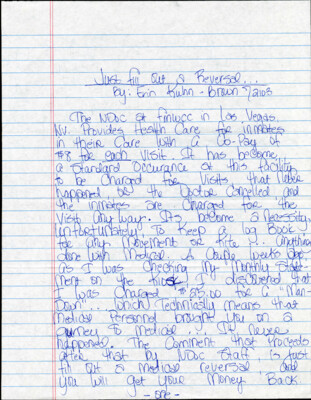 Just fill out a Reversal...
By: Erin Kuhn-Brown
The NDOC at fmwcc in Las Vegas,
NV. Provides Health Care for inmates
in their Care with a Co-Pay of
$8 for each visit. It has become
a Standard Occurance at this facility
to be Charged for Visits that Never
happened or the Doctor Cancelled and
the inmates are Charged for the
Visit anyway. Its become a Necessity,
unfortunately, to keep a log Book
for any Movement or Kite ... anything
done with Medical. A Couple weeks ago
as I was Checking my Monthly State-
ment on the Kiosk I discovered that
I was Charged for a "Man-
Down"... which technically means that
Medical Personnel brought you on a
gurney to Medical ... It Never
happened. The Comment that Proceeds
after that by NDOC Staff, is Just
fill out a Medical reversal, and
you will get your Money Back.
- one -